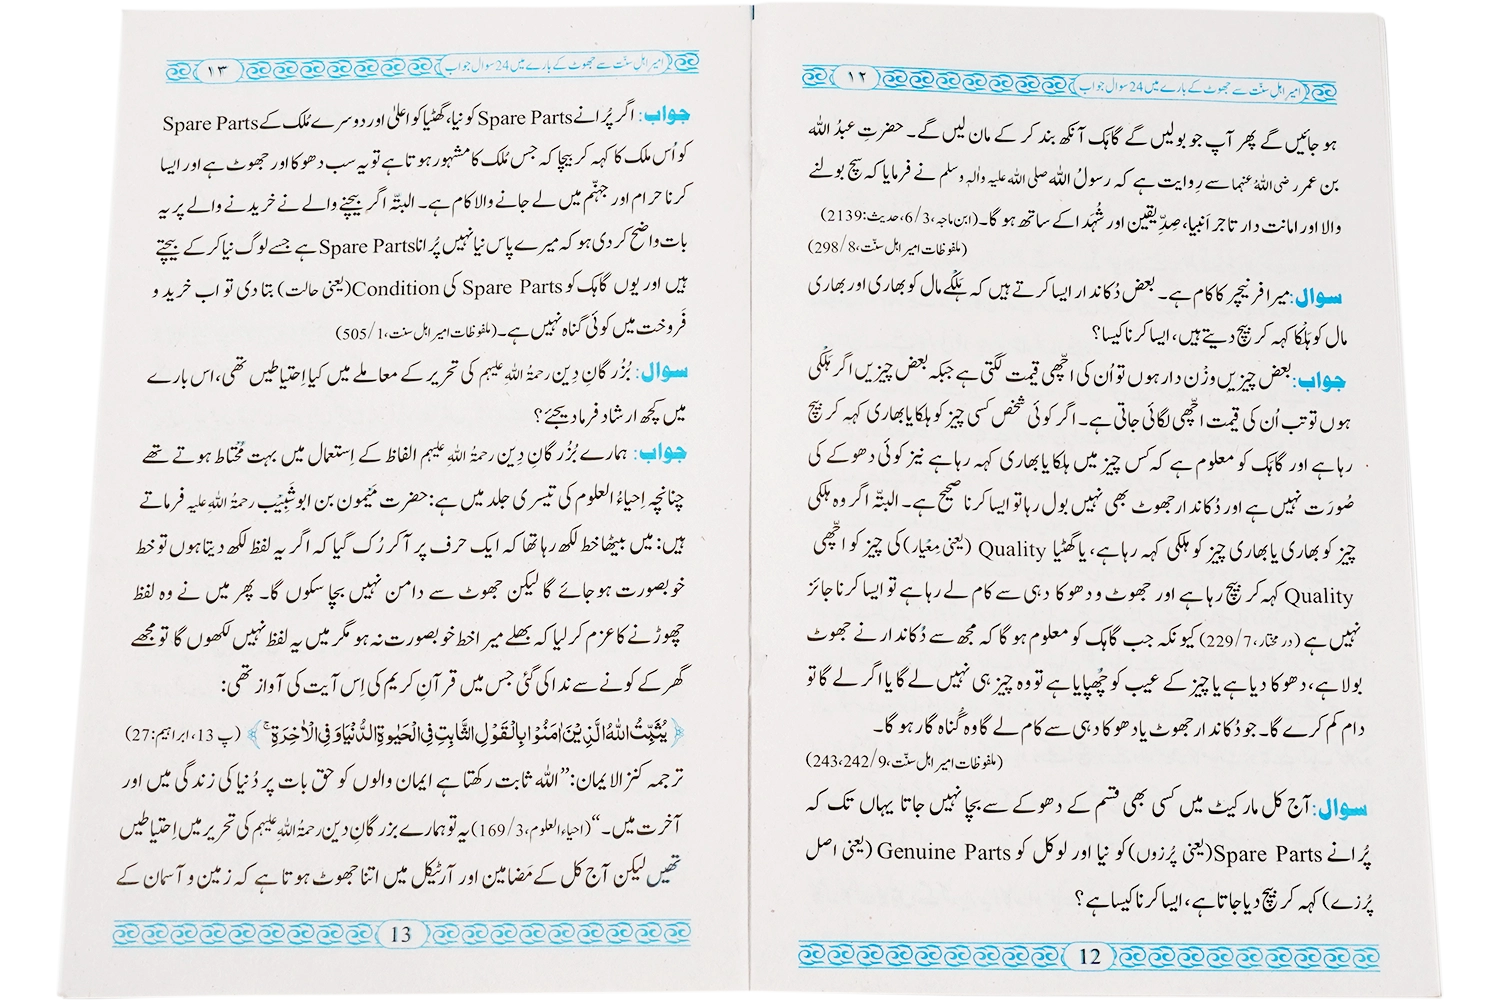 امیرِ اہلِ سنّت سے جھوٹ کے بارے میں 24 سوال جواب
۱۲
ہو جائیں گے پھر آپ جو بولیں گے گاہک آنکھ بند کر کے مان لیں گے۔ حضرتِ عبدُ اللہ
بن عمر رضی اللہُ عنہما سے رِوایت ہے کہ رسولُ اللہ صلی اللہ علیہ واٰلہٖ وسلم نے فرمایا کہ سچ بولنے
والا اور امانت دار تاجر اَنبیا، صِدِّیقین اور شُہَدا کے ساتھ ہو گا۔ (ابن ماجہ، 3/6، حدیث: 2139)
(ملفوظات امیر اہل سنّت، 8/298)
سوال: میرا فرنیچر کا کام ہے۔ بعض دُکاندار ایسا کرتے ہیں کہ ہلکے مال کو بھاری اور بھاری
مال کو ہلکا کہہ کر بیچ دیتے ہیں، ایسا کرنا کیسا؟
جواب: بعض چیزیں وزْن دار ہوں تو اُن کی اچّھی قیمت لگتی ہے جبکہ بعض چیزیں اگر ہلکی
ہوں تو تب اُن کی قیمت اچّھی لگائی جاتی ہے۔ اگر کوئی شخص کسی چیز کو ہلکا یا بھاری کہہ کر بیچ
رہا ہے اور گاہک کو معلوم ہے کہ کس چیز میں ہلکا یا بھاری کہہ رہا ہے نیز کوئی دھوکے کی
صُورَت نہیں ہے اور دُکاندار جھوٹ بھی نہیں بول رہا تو ایسا کرنا صحیح ہے۔ البتّہ اگر وہ ہلکی
چیز کو بھاری یا بھاری چیز کو ہلکی کہہ رہا ہے، یا گھٹیا Quality (یعنی مِعْیار) کی چیز کو اچّھی
Quality کہہ کر بیچ رہا ہے اور جھوٹ و دھوکا دہی سے کام لے رہا ہے تو ایسا کرنا جائز
نہیں ہے (در مختار، 7/229) کیونکہ جب گاہک کو معلوم ہو گا کہ مجھ سے دُکاندار نے جھوٹ
بولا ہے، دھوکا دیا ہے یا چیز کے عیب کو چُھپایا ہے تو وہ چیز ہی نہیں لے گا یا اگر لے گا تو
دام کم کرے گا۔ جو دُکاندار جھوٹ یا دھوکا دہی سے کام لے گا وہ گُناہ گار ہو گا۔
(ملفوظات امیر اہل سنّت، 9/242، 243)
سوال: آج کل مارکیٹ میں کسی بھی قسم کے دھوکے سے بچا نہیں جاتا یہاں تک کہ
پُرانے Spare Parts (یعنی پُرزوں) کو نیا اور لوکل کو Genuine Parts (یعنی اصل
پُرزے) کہہ کر بیچ دیا جاتا ہے، ایسا کرنا کیسا ہے؟
12
امیرِ اہلِ سنّت سے جھوٹ کے بارے میں 24 سوال جواب
۱۳
جواب: اگر پُرانے Spare Parts کو نیا، گھٹیا کو اعلیٰ اور دوسرے مُلک کے Spare Parts
کو اُس ملک کا کہہ کر بیچا کہ جس مُلک کا مشہور ہوتا ہے تو یہ سب دھوکا اور جھوٹ ہے اور ایسا
کرنا حرام اور جہنّم میں لے جانے والا کام ہے۔ البتّہ اگر بیچنے والے نے خریدنے والے پر یہ
بات واضح کر دی ہو کہ میرے پاس نیا نہیں پُرانا Spare Parts ہے جسے لوگ نیا کر کے بیچتے
ہیں اور یوں گاہک کو Spare Parts کی Condition (یعنی حالت) بتا دی تو اب خرید و
فَروخت میں کوئی گناہ نہیں ہے۔ (ملفوظات امیر اہل سنت، 1/505)
سوال: بُزُرگانِ دِین رحمۃُ اللہِ علیہم کی تحریر کے معاملے میں کیا اِحتیاطیں تھی، اس بارے
میں کچھ ارشاد فرما دیجئے؟
جواب: ہمارے بُزُرگانِ دِین رحمۃُ اللہِ علیہم الفاظ کے اِستعمال میں بہت مُحْتاط ہوتے تھے
چنانچہ اِحیاءُ العلوم کی تیسری جلد میں ہے: حضرت مَیْمون بن ابوشَبِیْب رحمۃُ اللہ علیہ فرماتے
ہیں: میں بیٹھا خط لکھ رہا تھا کہ ایک حرف پر آ کر رُک گیا کہ اگر یہ لفظ لکھ دیتا ہوں تو خط
خوبصورت ہو جائے گا لیکن جھوٹ سے دامن نہیں بچا سکوں گا۔ پھر میں نے وہ لفظ
چھوڑنے کا عزم کر لیا کہ بھلے میرا خط خوبصورت نہ ہو مگر میں یہ لفظ نہیں لکھوں گا تو مجھے
گھر کے کونے سے ندا کی گئی جس میں قرآنِ کریم کی اِس آیت کی آواز تھی:
﴿یُثَبِّتُ اللّٰهُ الَّذِیْنَ اٰمَنُوْا بِالْقَوْلِ الثَّابِتِ فِی الْحَیٰوةِ الدُّنْیَا وَ فِی الْاٰخِرَةِۚ﴾ (پ 13، ابراہیم: 27)
ترجمہ کنز الایمان: ”اللہ ثابت رکھتا ہے ایمان والوں کو حق بات پر دُنیا کی زندگی میں اور
آخرت میں۔“ (احیاء العلوم، 3/169) یہ تو ہمارے بزرگانِ دین رحمۃُ اللہِ علیہم کی تحریر میں اِحتیاطیں
تھیں لیکن آج کل کے مَضامین اور آرٹیکل میں اتنا جھوٹ ہوتا ہے کہ زمین و آسمان کے
13